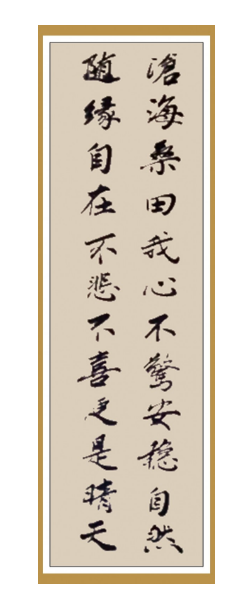 滄海桑田我心不驚安穩自然
随缘自在不悲不喜更是晴天